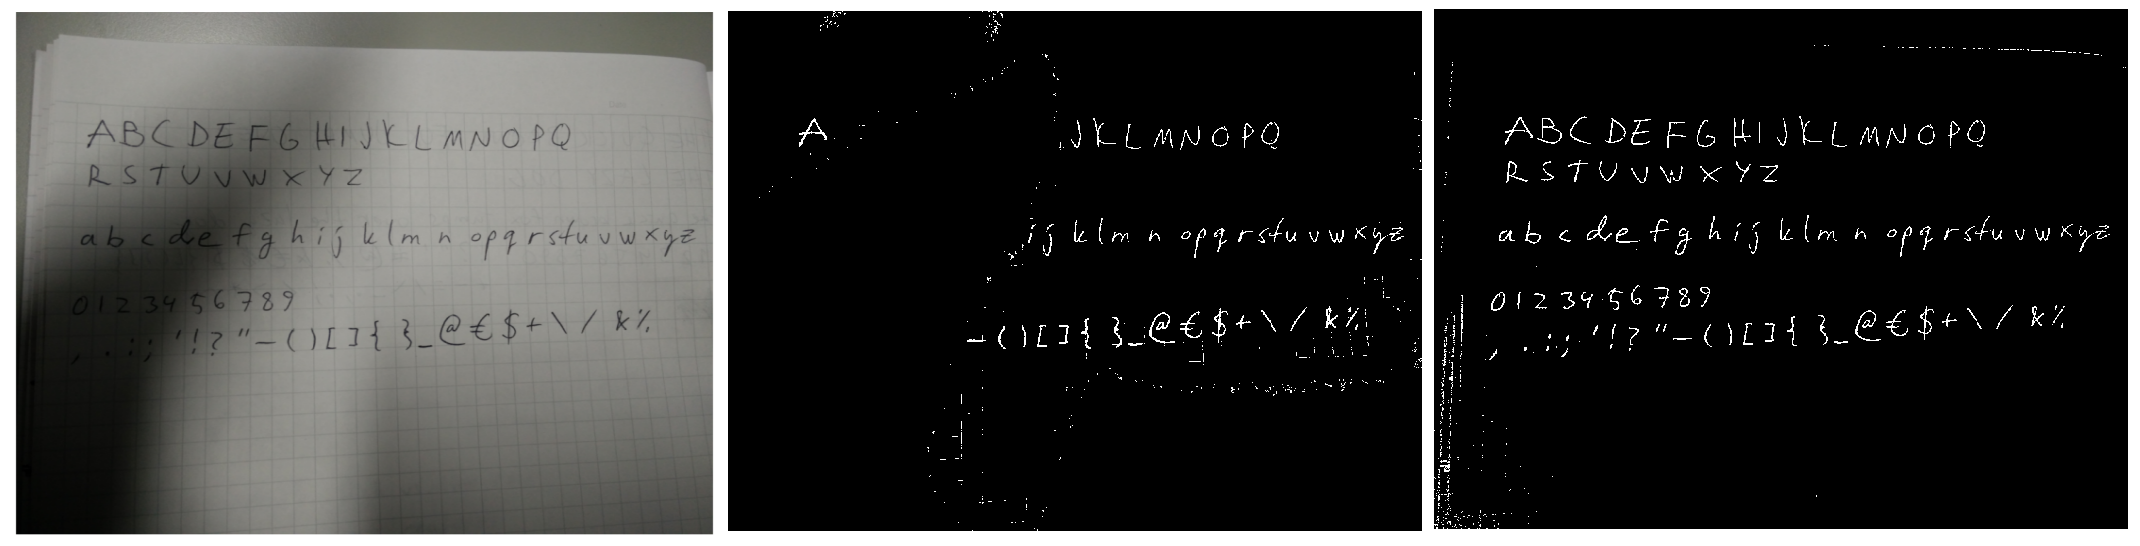 A B C D E F G H I J K L M N O P Q
R S T U V W X Y Z
a b c d e f g h i j k l m n o p q r s t u v w x y z
0 1 2 3 4 5 6 7 8 9
, . : ; ' ! ? " - ( ) [ ] { } _ @ € $ + \ / & %
A J K L M N O P Q
i j k l m n o p q r s t u v w x y z
- ( ) [ ] { } _ @ € $ + \ / & %
A B C D E F G H I J K L M N O P Q
R S T U V W X Y Z
a b c d e f g h i j k l m n o p q r s t u v w x y z
0 1 2 3 4 5 6 7 8 9
, . : ; ' ! ? " - ( ) [ ] { } _ @ € $ + \ / & %